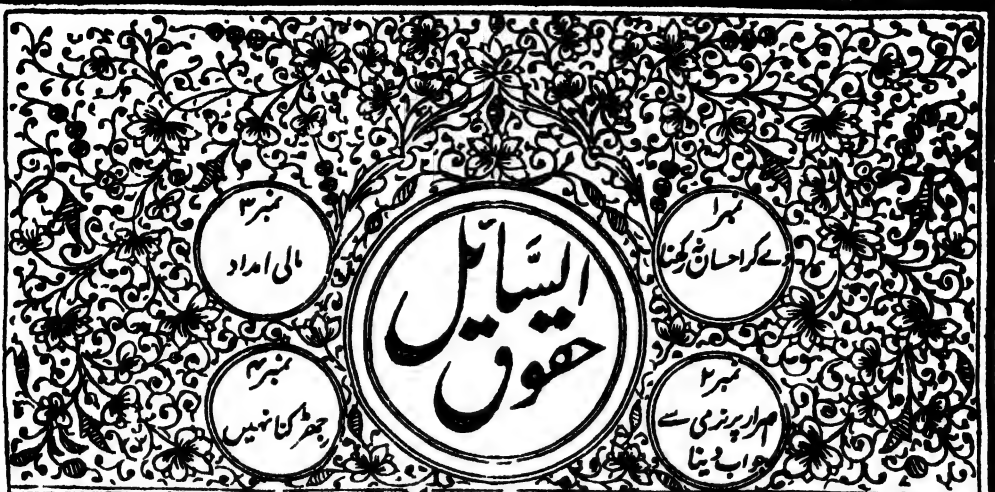 حقوق
السَّائل
نمبر ۱
دے کر احسان نہ رکھنا
نمبر ۲
اصرار پر نرمی سے
جواب دینا
نمبر ۳
مالی امداد
نمبر ۴
جھڑکنا نہیں